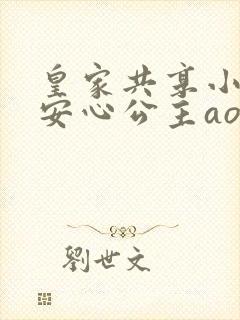 皇家共享小
安心公主ao
劉世文